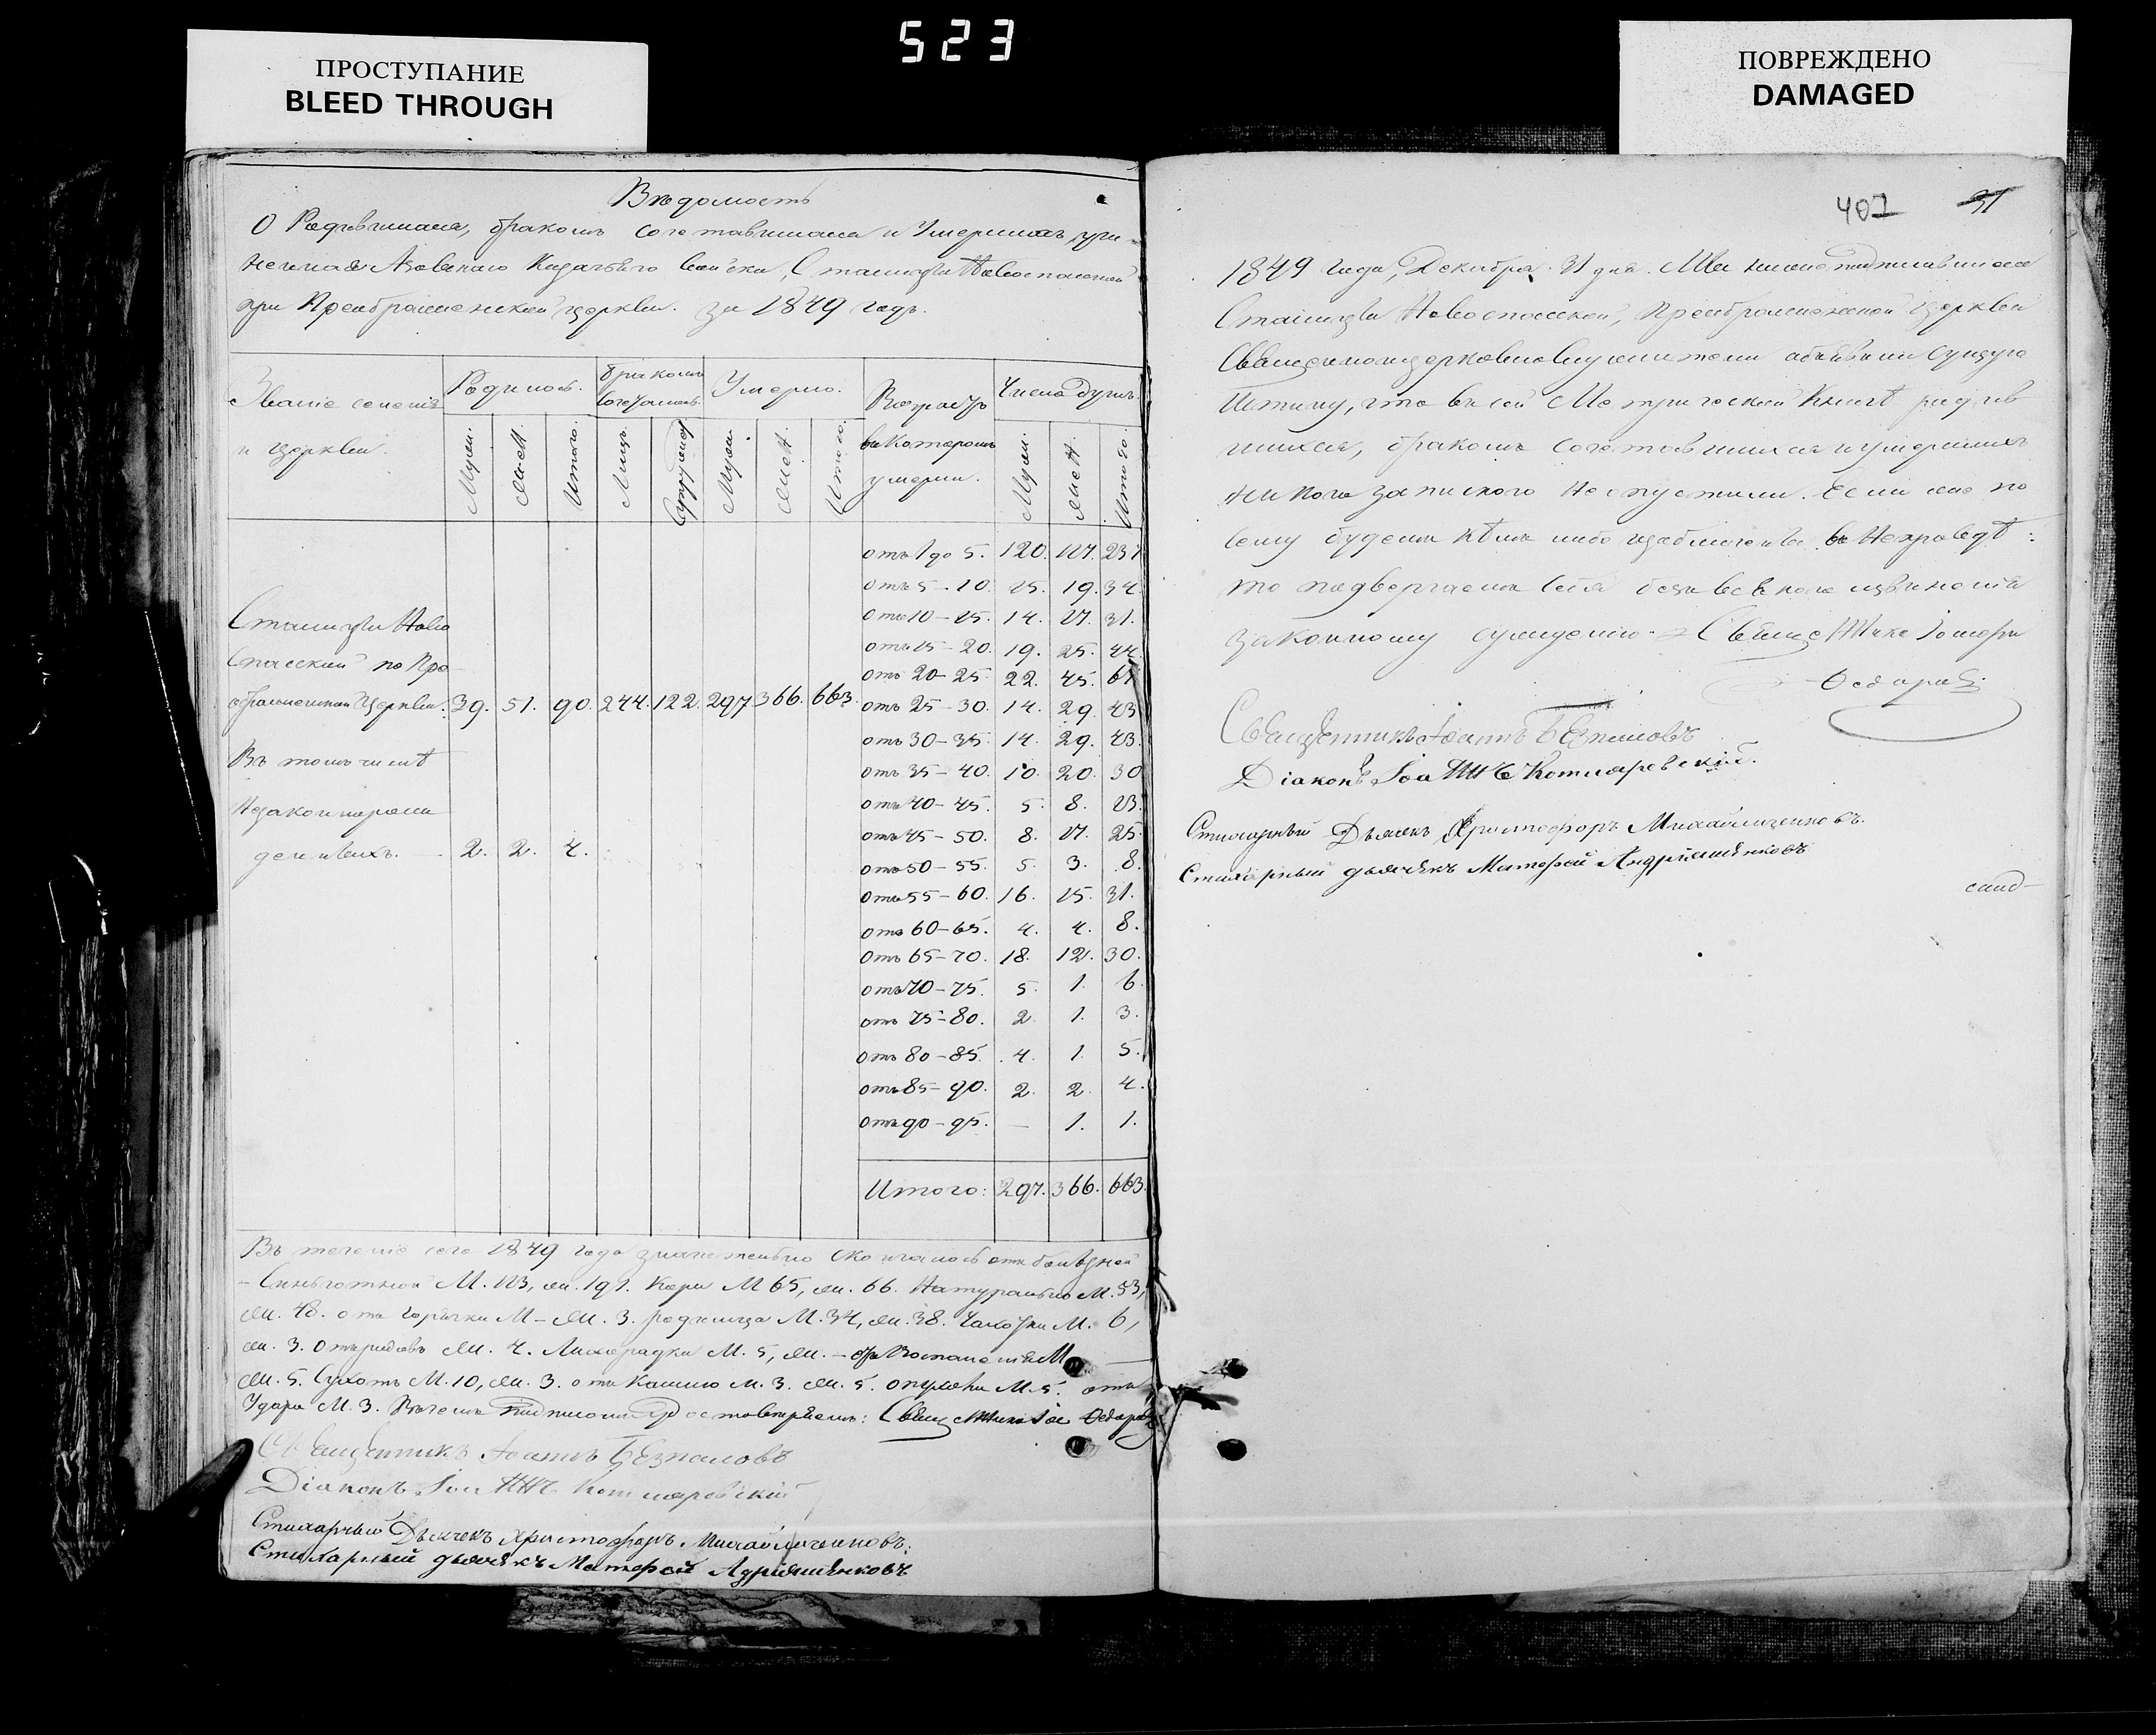 523
ПРОСТУПАНИЕ
BLEED THROUGH
ПОВРЕЖДЕНО
DAMAGED
Вѣдомость
О Родившихся, бракомъ сочетавшихся и Умершихъ, учи-
ненная Азовскаго Казачьяго войска, Станицы Новоспасской
при Преображенской церкви. за 1849 годъ.
Званіе селенія
и церкви.
Родилось.
Муж.
Жен.
Итого.
бракомъ
сочеталось
Лицъ
Супружествъ
Умерло.
Муж.
Жен.
Итого.
Возрастъ
въ которомъ
умерли.
Число душъ.
Муж.
Жен.
Итого
отъ 1 до 5. 120. 117. 237
отъ 5-10. 15. 19. 34.
отъ 10-15. 14. 17. 31.
отъ 15-20. 19. 25. 44.
отъ 20-25. 22. 45. 67
отъ 25-30. 14. 29. 43
отъ 30-35. 14. 29. 43.
отъ 35-40. 10. 20. 30
отъ 40-45. 5. 8. 13.
отъ 45-50. 8. 17. 25.
отъ 50-55. 5. 3. 8.
отъ 55-60. 16. 15. 31.
отъ 60-65. 4. 4. 8.
отъ 65-70. 18. 12. 30.
отъ 70-75. 5. 1. 6.
отъ 75-80. 2. 1. 3.
отъ 80-85. 4. 1. 5.
отъ 85-90. 2. 2. 4.
отъ 90-95. — 1. 1.
Итого: 297. 366. 663.
Станицы Ново
Спасской по Пре-
ображенской Церкви: 39. 51. 90. 244. 122. 297. 366. 663.
Въ томъ числѣ
Незаконнорож
денныхъ. 2. 2. 4.
Въ теченіе сего 1849 года скончалось отъ болѣзней
М. 113, ж. 191. Кори М 65, ж. 66. Натурально М. 53,
ж. 48. отъ Горячки М - Ж. 3. родимца М. 34, ж. 38. Чахотки М. 6,
ж. 3. отъ родовъ Ж. 4. Лихорадки М. 5, Ж. - отъ Воспаленія М —
Ж. 5. Сухотъ М. 10, ж. 3. отъ Кашлю м. 3. ж. 5. опухоли М. 5. отъ
Удара М. 3. Въ чемъ подписомъ удостовѣряемъ:
Священникъ Іоаннъ Безпаловъ
Діаконъ Іоаннъ Котляревскій
Стихарный Дьячекъ Христофоръ Михайличенковъ.
Стихарный дьячекъ Матфей Адріяшенковъ
407 31
1849 года, Декабря 31 дня. Мы нижеподписавшіеся
Станицы Новоспасской, Преображенской церкви
Священноцерковнослужители объявили сущую
Истину, что въ сей Метрической Книгѣ родив
шихся, бракомъ сочетавшихся и умершихъ
никого запискою не опустили. Если же по
сему будемъ кѣмъ либо изобличены въ неправдѣ:
то подвергаемъ себя безъ всякаго извиненія
законному сужденію.
Священникъ Іоаннъ Безпаловъ
Діаконъ Іоаннъ Котляревскій.
Стихарный Дьячекъ Христофоръ Михайличенковъ.
Стихарный дьячекъ Матфей Андріяшенковъ